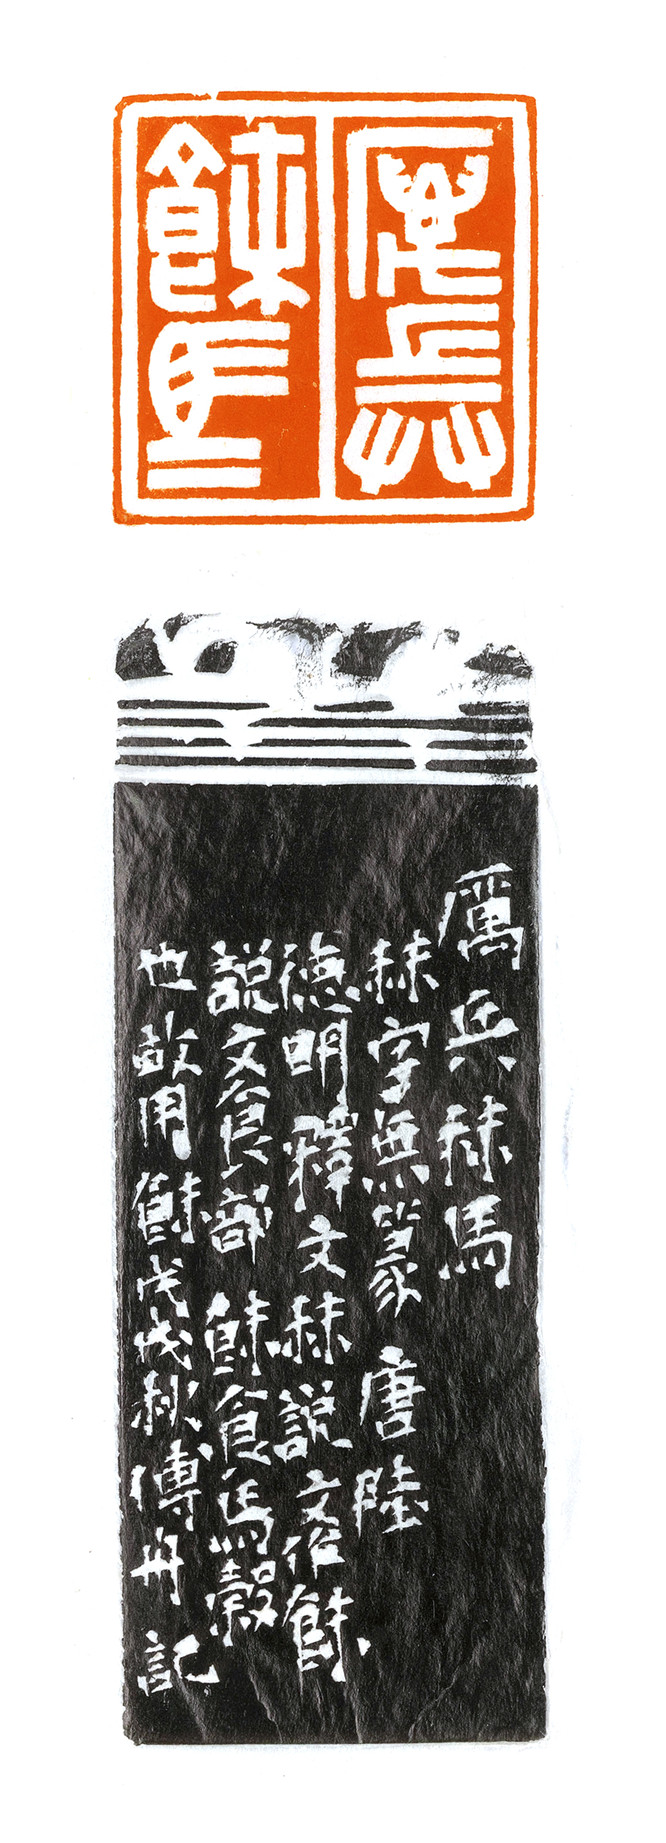 厲兵
䬴馬
厲兵秣馬
秣字無篆唐陸
德明釋文秣説文作䬴
説文食部䬴食馬穀
也故用䬴戊戌秋傅舟記